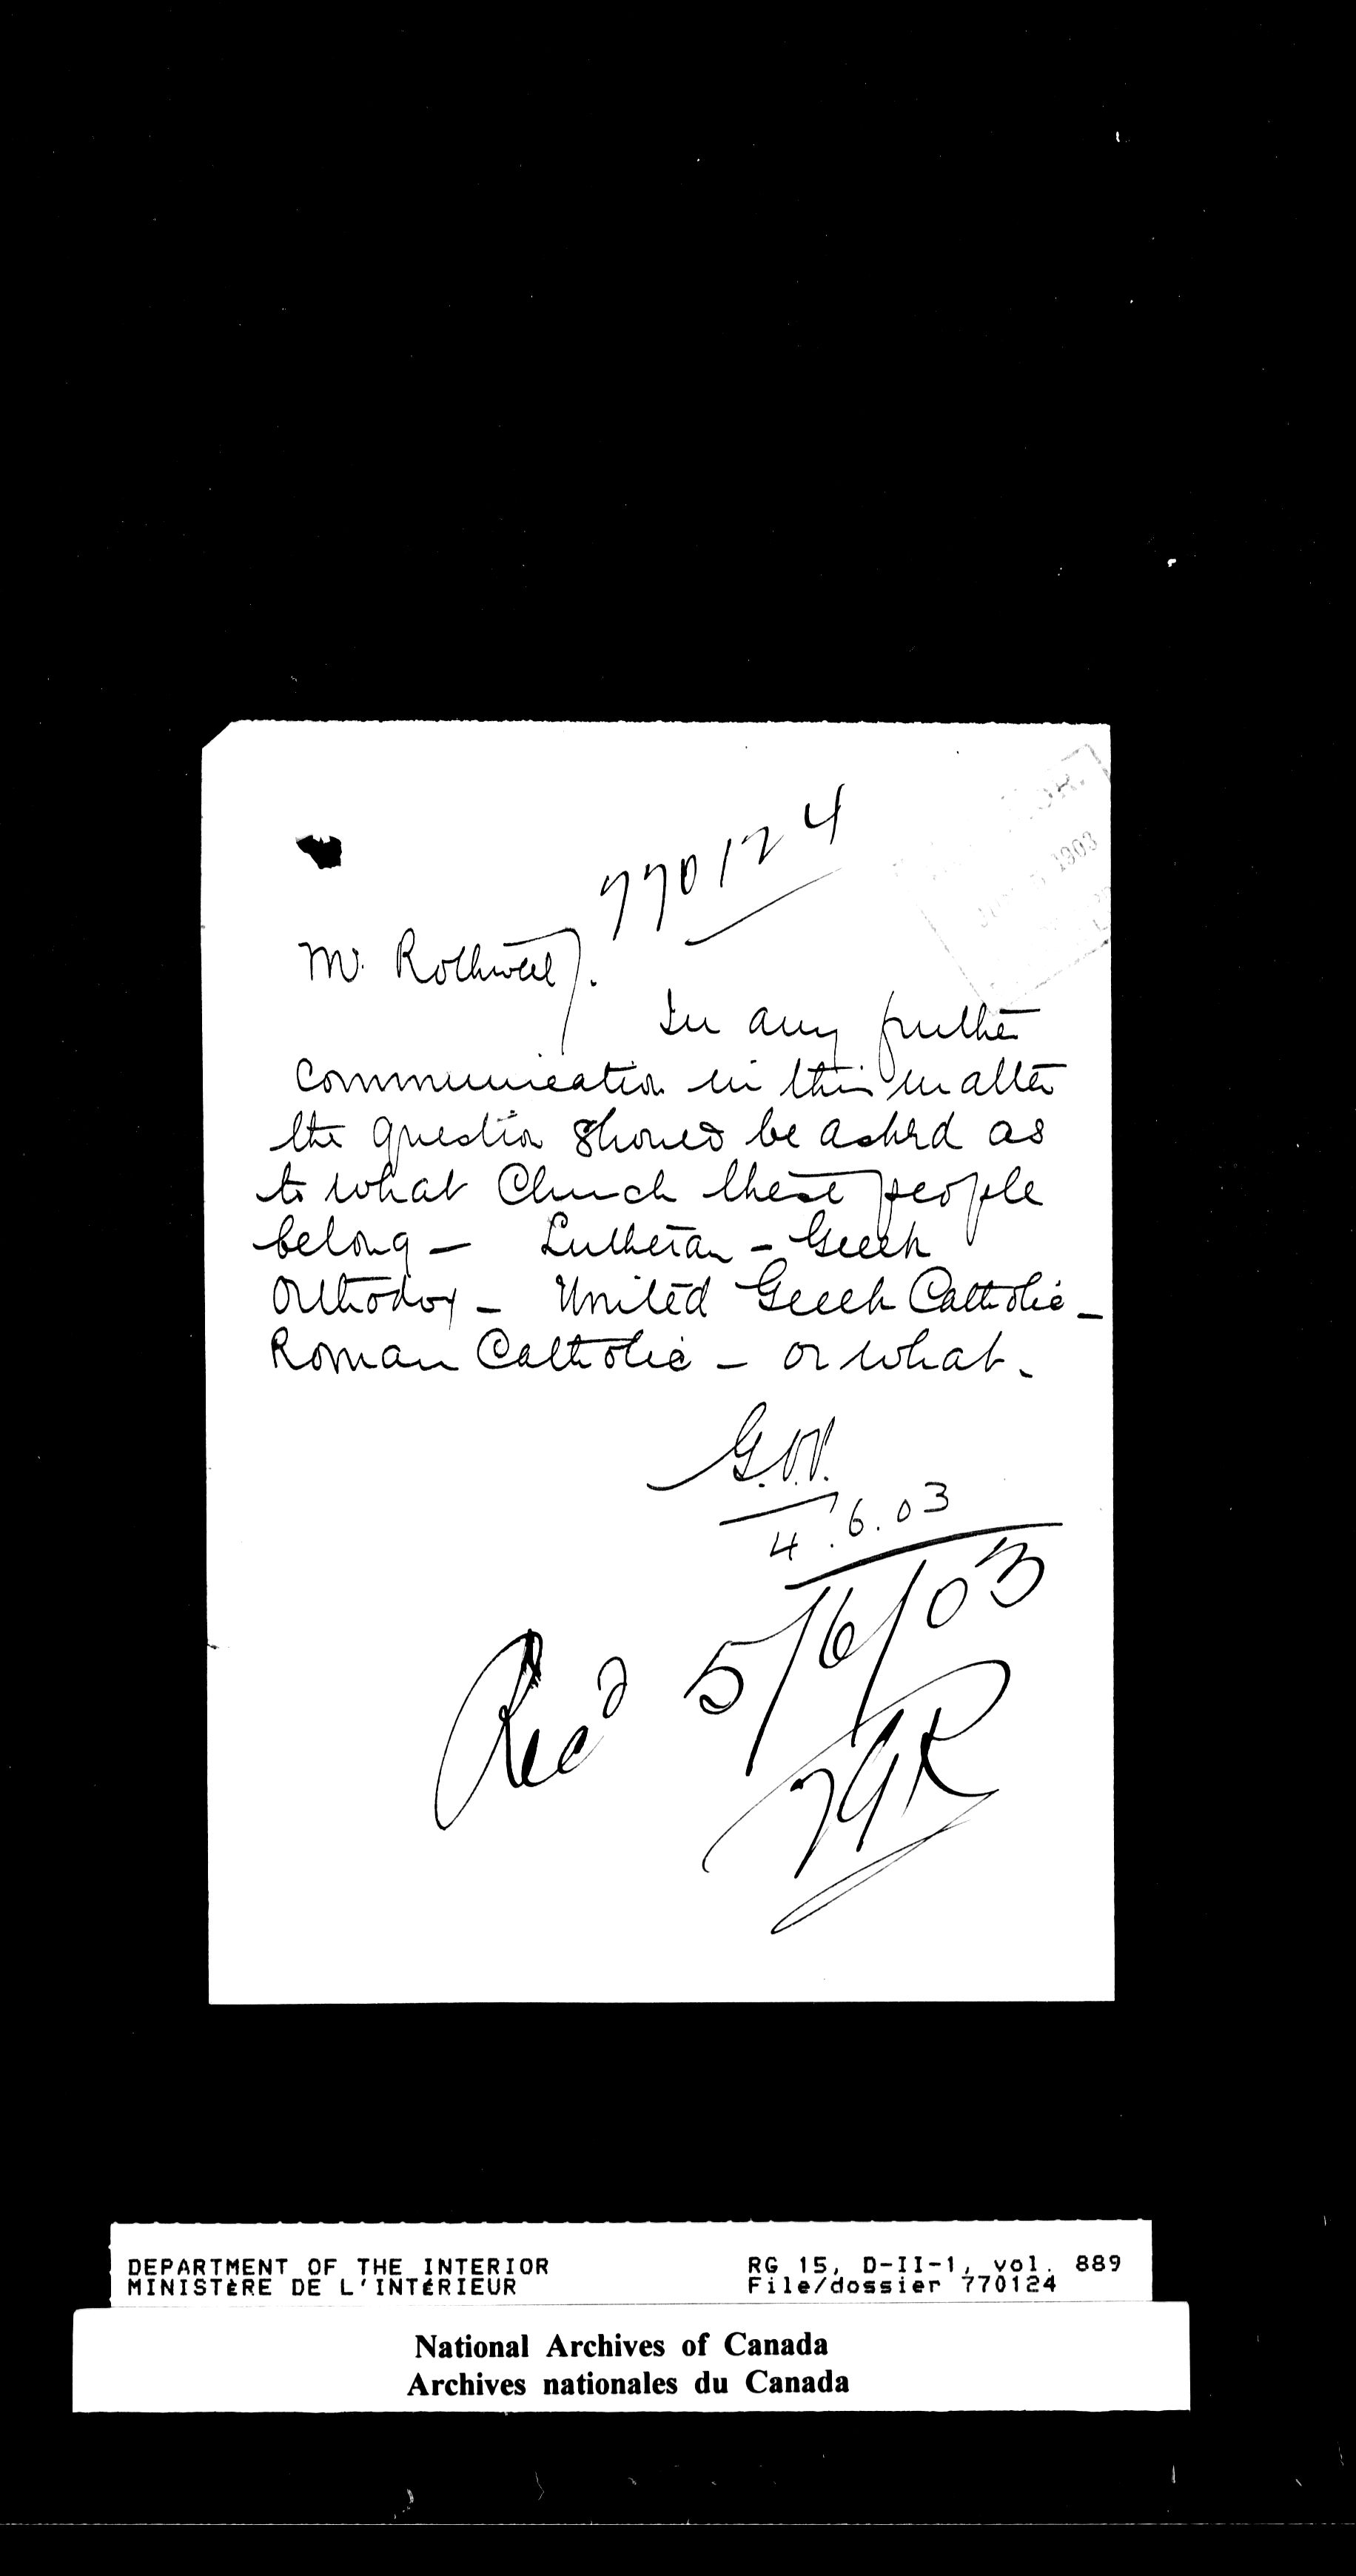 770124
Mr. Rothwell.
In any further
Communication in this matter
the question should be asked as
to what Church these people
belong — Lutheran — Greek
Orthodox — United Greek Catholic —
Roman Catholic — or what.
4.6.03
Rec'd 5/6/03
DEPARTMENT OF THE INTERIOR RG 15, D-II-1, vol. 889
MINISTÈRE DE L'INTÉRIEUR File/dossier 770124
National Archives of Canada
Archives nationales du Canada